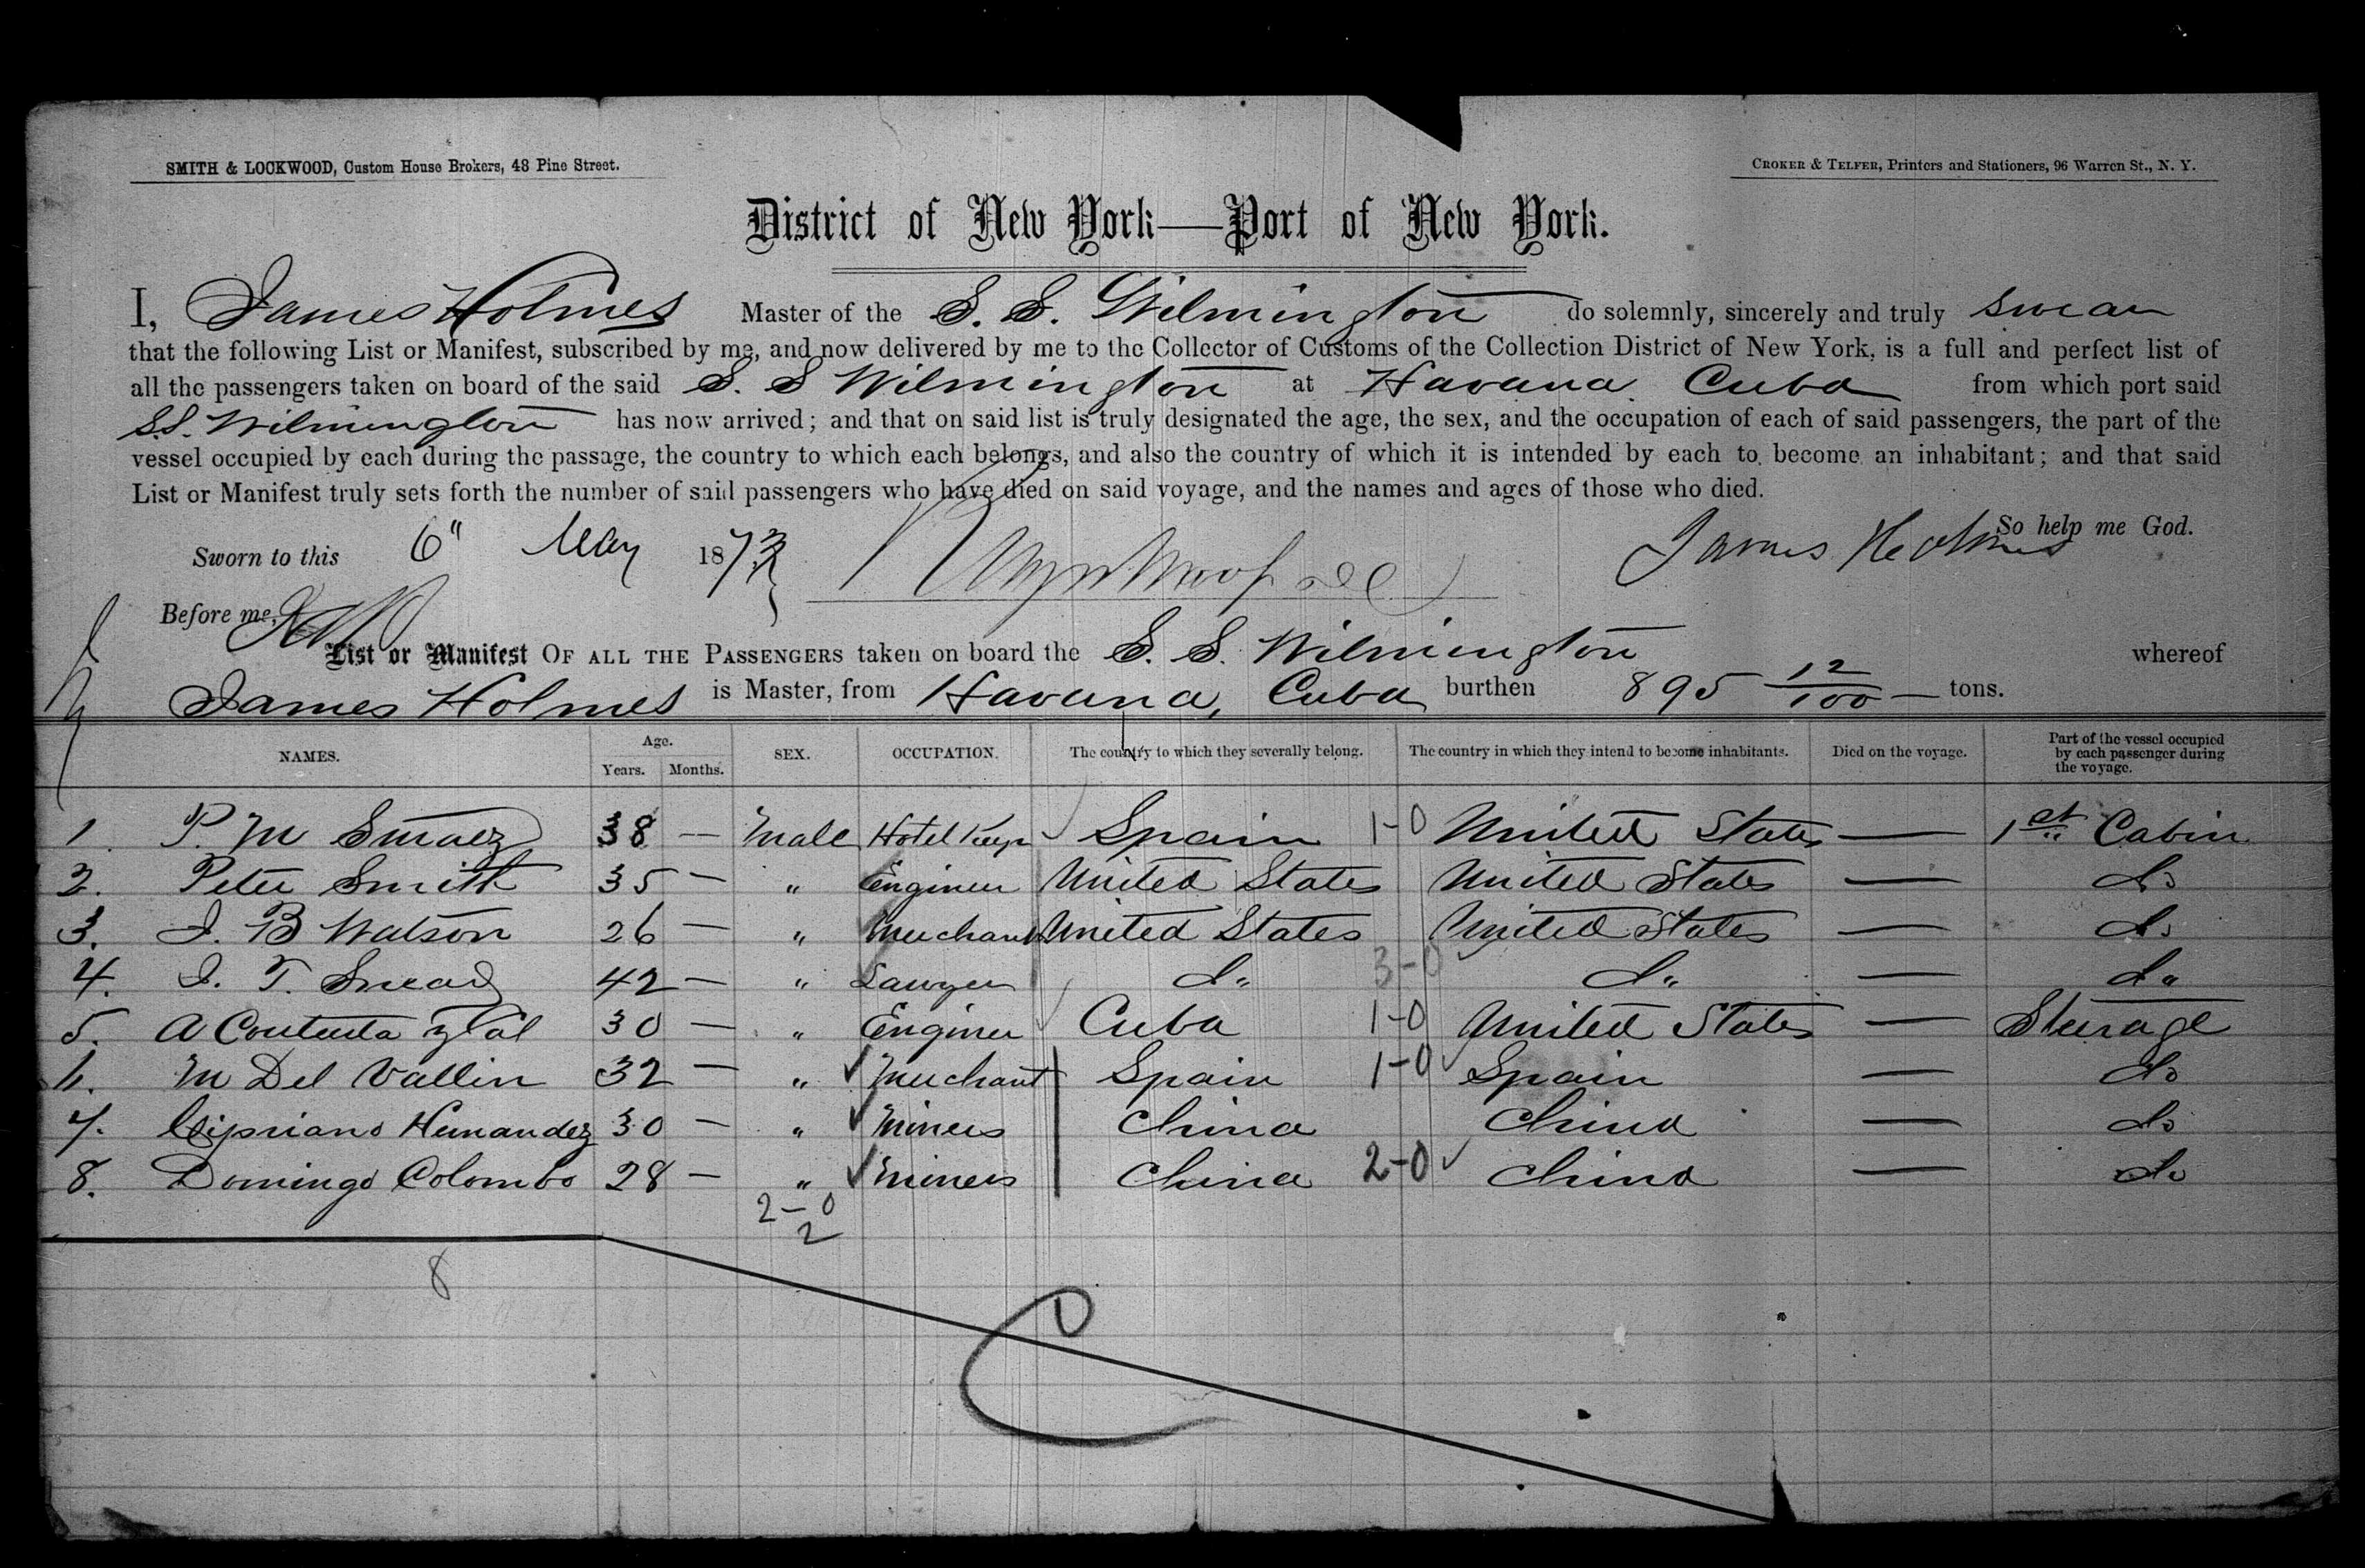 SMITH & LOCKWOOD, Custom House Brokers, 48 Pine Street.
CROKER & TELFER, Printers and Stationers, 96 Warren St., N. Y.
District of New York—Port of New York.
I, James Holmes Master of the S. S. Wilmington do solemnly, sincerely and truly swear
that the following List or Manifest, subscribed by me, and now delivered by me to the Collector of Customs of the Collection District of New York, is a full and perfect list of
all the passengers taken on board of the said S. S Wilmington at Havana Cuba from which port said
S.S. Wilmington has now arrived; and that on said list is truly designated the age, the sex, and the occupation of each of said passengers, the part of the
vessel occupied by each during the passage, the country to which each belongs, and also the country of which it is intended by each to become an inhabitant; and that said
List or Manifest truly sets forth the number of said passengers who have died on said voyage, and the names and ages of those who died.
So help me God.
Sworn to this 6" May 1873 James Holmes
Before me,
List or Manifest OF ALL THE PASSENGERS taken on board the S. S. Wilmington whereof
James Holmes is Master, from Havana, Cuba burthen 895 12/100 tons.
NAMES. Age. Years. Months. SEX. OCCUPATION. The country to which they severally belong. The country in which they intend to become inhabitants. Died on the voyage. Part of the vessel occupied by each passenger during the voyage.
1 P. M 38 — Male Hotel Keepr Spain 1-0 United States — 1st Cabin
2. Peter Smith 35 — " Engineer United States United States — do
3. J. B Watson 26 — " Merchant United States United States — do
4. J. T. Snead 42 — " Lawyer do 3-0 do — do
5. A 30 — " Engineer Cuba 1-0 United States — Steerage
6. M Del Vallin 32 — " Merchant Spain 1-0 Spain — do
7. Cipriano Hernandez 30 — " Miners China China — do
8. Domingo Colombo 28 — " Miners China 2-0 China — do
2-0
2
8